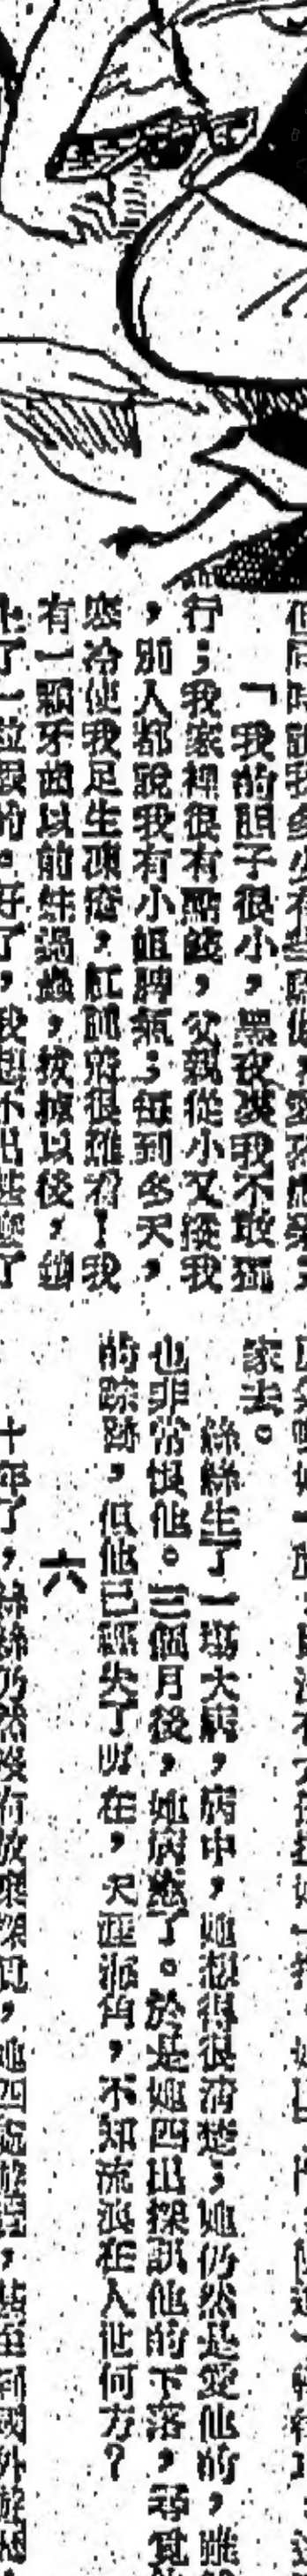 「我的胆子很小，黑夜裏我不敢獨
行；我家裡很有點錢，父親從小又縱我
，別人都說我有小姐脾氣；每到冬天，
寒冷使我足生凍瘡，紅腫得很難看！我
有一顆牙齒以前蛀過蟲，拔掉以後，鑲
了一粒銀的。好了，我想不出甚麼了
家去。
絲絲生了一場大病，病中，她想得很清楚；她仍然是愛他的，雖
也非常恨他。三個月後，她病癒了。於是她四出探訊他的下落，尋覓
的踪跡，但他已經失了所在，天涯海角，不知流浪在人世何方？
六
十年了，絲絲仍然沒有放棄探覓，她四處